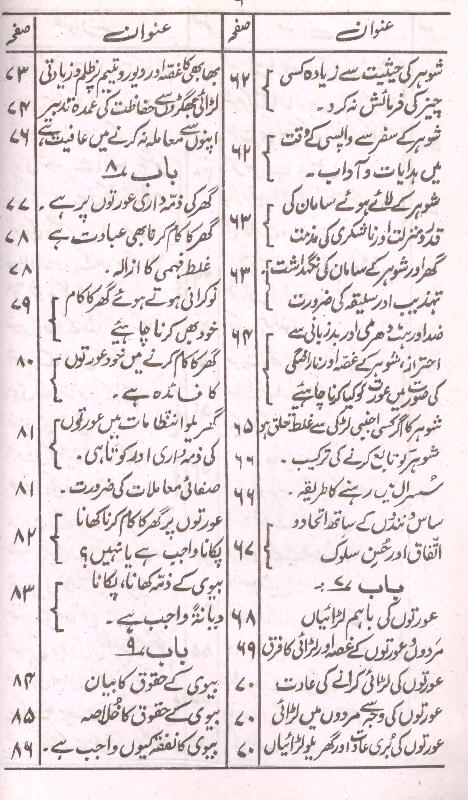 ۶
عنوان صفحہ
شوہر کی حیثیت سے زیادہ کسی
چیز کی فرمائش نہ کرو۔ ۶۲
شوہر کے سفر سے واپسی کے وقت
میں ہدایات و آداب۔ ۶۲
شوہر کے لائے ہوئے سامان کی
قدر و منزلت اور ناشکری کی مذمت ۶۳
گھر اور شوہر کے سامان کی نگہداشت، ۶۳
تہذیب اور سلیقہ کی ضرورت
ضد اور ہٹ دھرمی اور بدزبانی سے ۶۴
احتراز، شوہر کے غصہ اور ناراضگی
کی صورت میں عورت کو کیا کرنا چاہئے
شوہر کا اگر کسی اجنبی لڑکی سے غلط تعلق ہو ۶۵
شوہر کو تابع کرنے کی ترکیب۔ ۶۶
سسرال میں رہنے کا طریقہ۔ ۶۶
ساس و نندوں کے ساتھ اتحاد و
اتفاق اور حُسنِ سلوک ۶۷
باب ۷
عورتوں کی باہم لڑائیاں ۶۸
مردوں و عورتوں کے غصہ اور لڑائی کا فرق ۶۹
عورتوں کی لڑائی کرانے کی عادت ۷۰
عورتوں کی وجہ سے مردوں میں لڑائی ۷۰
عورتوں کی بُری عادت اور گھریلو لڑائیاں ۷۰
عنوان صفحہ
بھابھی کا غصہ اور دیور و یتیم پر ظلم و زیادتی ۷۳
لڑائی جھگڑوں سے حفاظت کی عمدہ تدبیر ۷۴
اپنوں سے معاملہ نہ کرنے میں عافیت ہے ۷۶
باب ۸
گھر کی ذمہ داری عورتوں پر ہے۔ ۷۷
گھر کا کام کرنا بھی عبادت ہے ۷۸
غلط فہمی کا ازالہ۔ ۷۸
نوکرانی ہوتے ہوئے گھر کا کام ۷۹
خود بھی کرنا چاہئے
گھر کا کام کرنے میں خود عورتوں ۸۰
کا فائدہ ہے۔
گھریلو انتظامات میں عورتوں
کی ذمہ داری اور کوتاہی۔ ۸۱
صفائی معاملات کی ضرورت۔ ۸۱
عورتوں پر گھر کا کام کرنا کھانا
پکانا واجب ہے یا نہیں؟ ۸۲
بیوی کے ذمہ کھانا، پکانا ۸۳
دیانۃً واجب ہے۔
باب ۹
بیوی کے حقوق کا بیان ۸۴
بیوی کے حقوق کا خلاصہ ۸۵
بیوی کا نفقہ کیوں واجب ہے۔ ۸۶